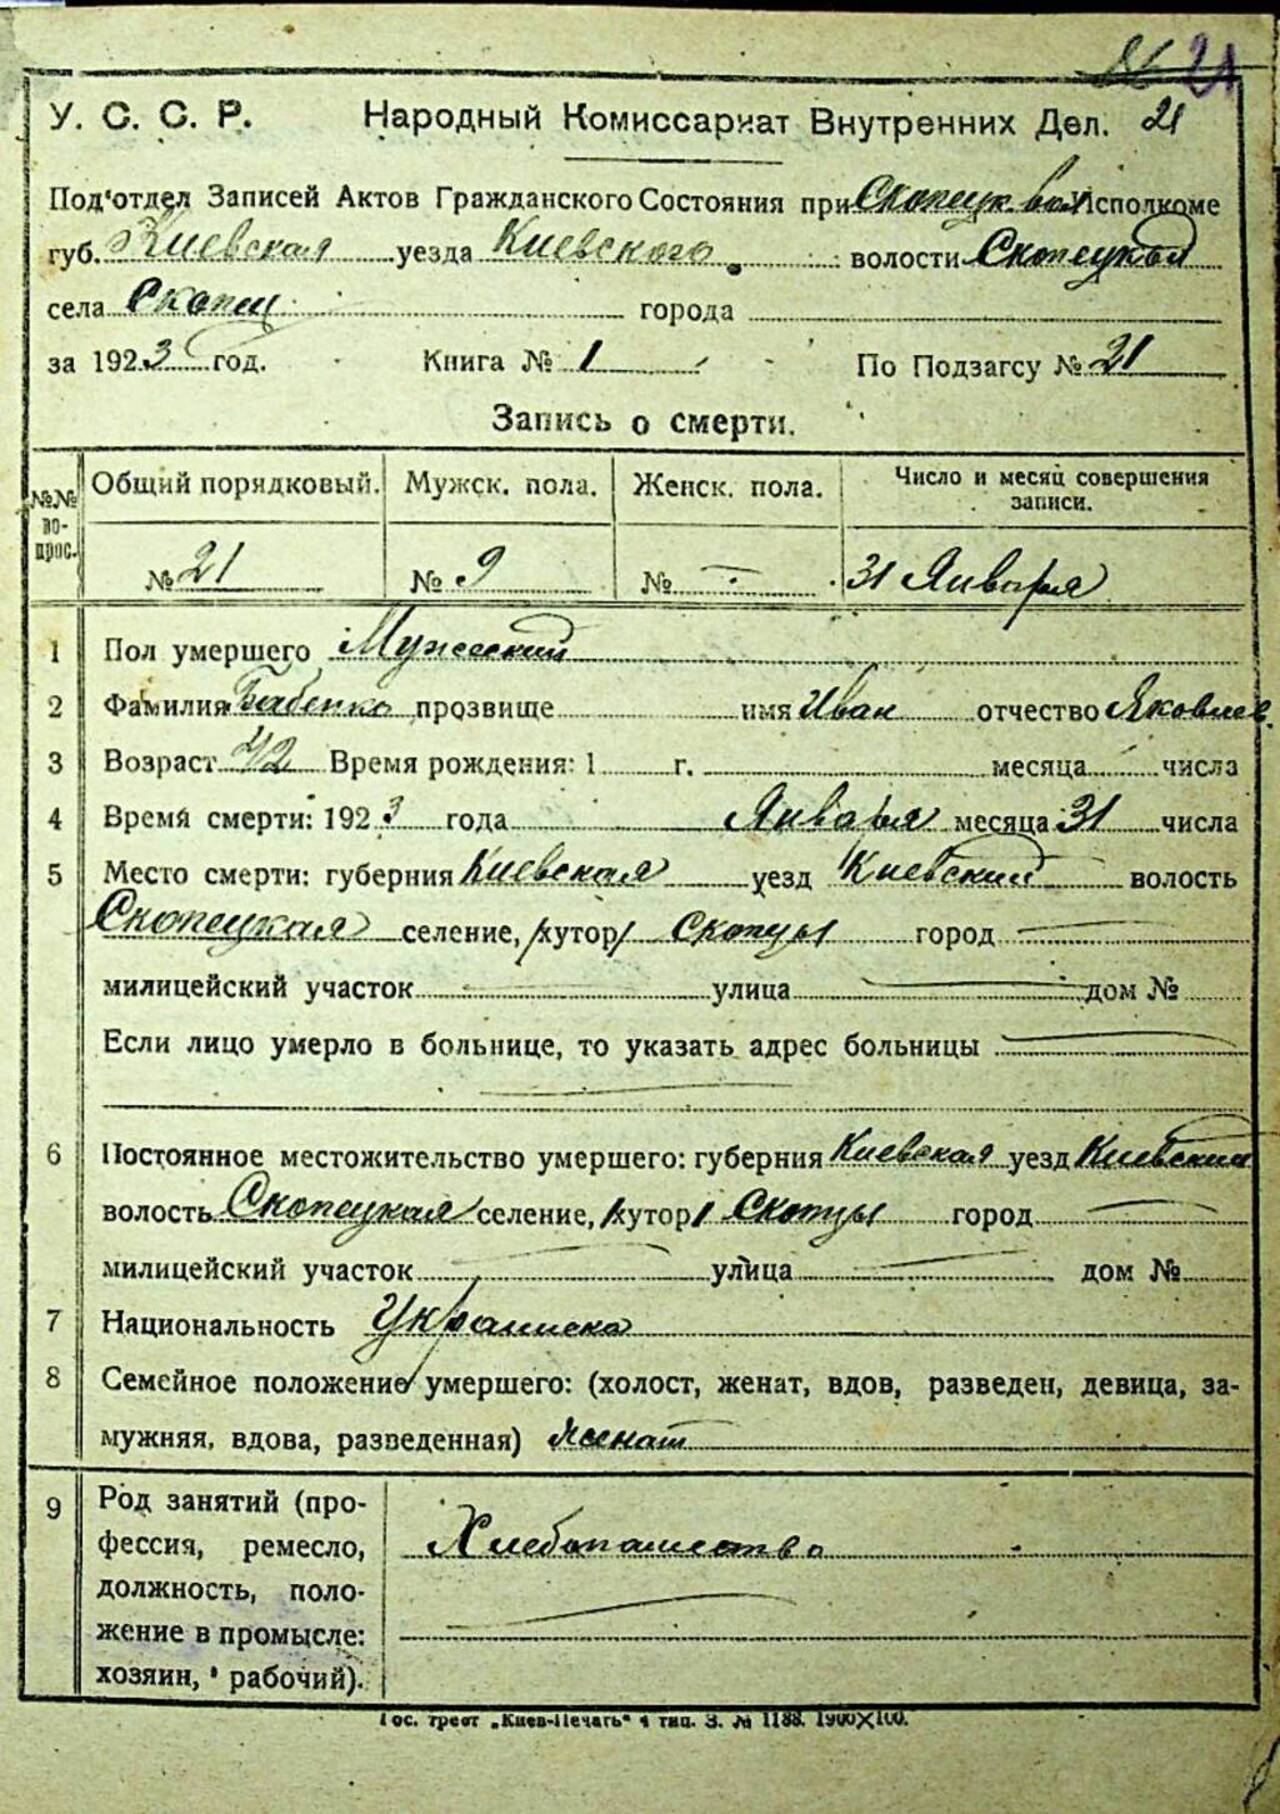 № 21
У. С. С. Р. Народный Комиссариат Внутренних Дел. 21
Под'отдел Записей Актов Гражданского Состояния при Скопецк. вол Исполкоме
губ. Киевская уезда Киевского волости Скопецкой
села Скопец города
за 1923 год. Книга № 1 По Подзагсу № 21
Запись о смерти.
№№ во-прос. Общий порядковый. Мужск. пола. Женск. пола. Число и месяц совершения записи.
№ 21 № 9 № — 31 Января
1 Пол умершего Мужеский
2 Фамилия Бабенко прозвище имя Иван отчество Яковлев.
3 Возраст 42 Время рождения: 1 г. месяца числа
4 Время смерти: 1923 года Января месяца 31 числа
5 Место смерти: губерния Киевская уезд Киевский волость
Скопецкая селение, /хутор/ Скопцы город —
милицейский участок — улица — дом №
Если лицо умерло в больнице, то указать адрес больницы —
6 Постоянное местожительство умершего: губерния Киевская уезд Киевский
волость Скопецкая селение, /хутор/ Скопцы город —
милицейский участок — улица — дом №
7 Национальность Украинска
8 Семейное положение умершего: (холост, женат, вдов, разведен, девица, за-
мужняя, вдова, разведенная) женат
9 Род занятий (про-
фессия, ремесло, Хлебопашество
должность, поло-
жение в промысле:
хозяин, рабочий).
Гос. трест „Киев-Печать" 4 тип. З. № 1188. 1900×100.